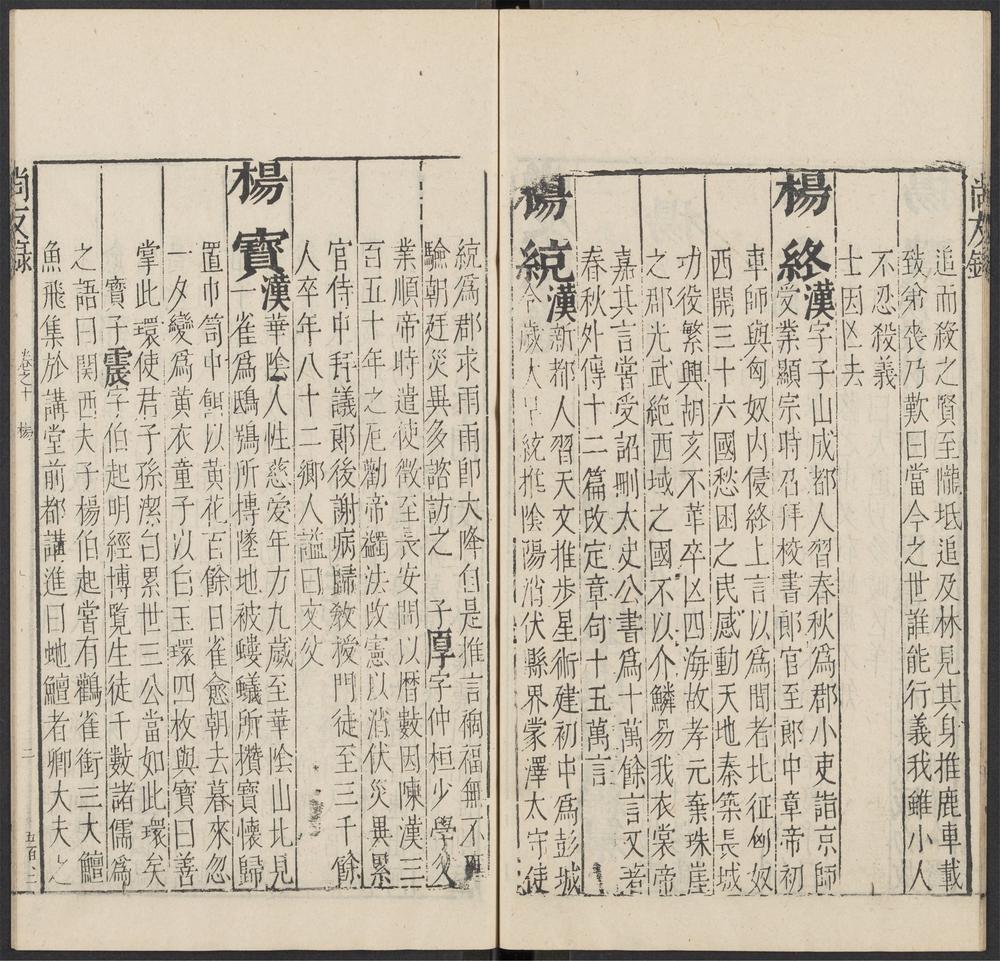 尚友錄
追而殺之賢至隴坻追及林見其身推鹿車載
致弟喪乃歎曰當今之世誰能行義我雖小人
不忍殺義
士因亾去
楊終漢字子山成都人習春秋爲郡小吏詣京師
受業顯宗時召拜校書郎官至郎中章帝初
車師與匈奴内侵終上言以爲間者比征匈奴
西開三十六國愁困之民感動天地秦築長城
功役繁興胡亥不革卒亾四海故孝元棄珠崖
之郡光武絶西域之國不以介鱗易我衣裳帝
嘉其言嘗受詔刪太史公書爲十萬餘言又著
春秋外傳十二篇改定章句十五萬言
楊統漢新都人習天文推步星術建初中爲彭城
令歲大旱統推陰陽消伏縣界蒙澤太守使
統爲郡求雨雨卽大降自是推言禍福無不
驗朝廷災異多諮訪之 子厚字仲桓少學父
業順帝時遣使徵至長安間以曆數因陳漢三
百五十年之厄勸帝蠲法改憲以消伏災異累
官侍中拜議郎後謝病歸敎授門徒至三千餘
人卒年八十二鄉人謚曰文父
楊寶漢華陰人性慈爱年方九歲至華陰山北見
一雀爲鴟鴞所搏墜地被螻蟻所攢寶懷歸
置巾笥中餌以黃花百餘日雀愈朝去暮來忽
一夕變爲黃衣童子以白玉環四枚與寶曰善
掌此環使君子孫潔白累世三公當如此環矣
寶子震字伯起明經博覧生徒千數諸儒爲
之語曰関西夫子楊伯起嘗有鸛雀銜三大鱣
魚飛集於講堂前都講進曰虵鱣者卿大夫之
尚友錄
卷之十 楊
二
五百二